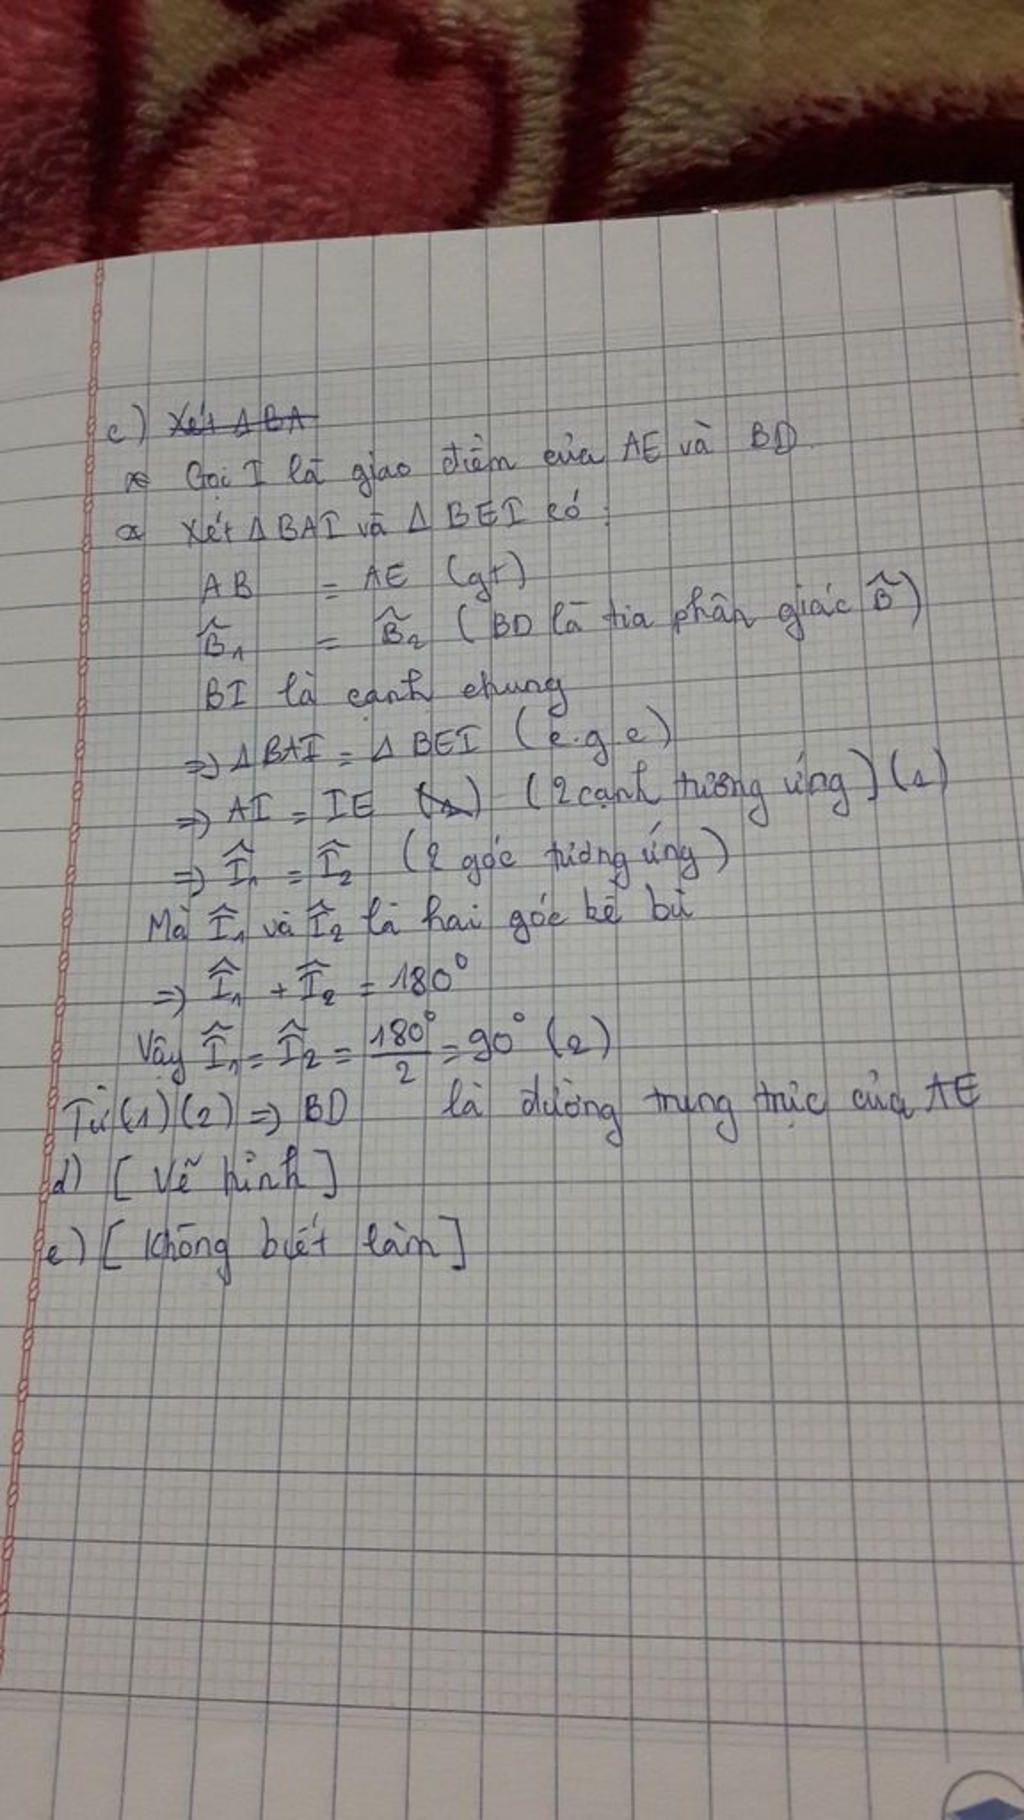 c) Xét Δ BA
* Gọi I là giao điểm của AE và BD
* Xét Δ BAI và Δ BEI có:
AB = AE (gt)
B̂₁ = B̂₂ (BD là tia phân giác B̂)
BI là cạnh chung
=> Δ BAI = Δ BEI (c.g.c)
=> AI = IE (1) (2 cạnh tương ứng) (1)
=> Î₁ = Î₂ (2 góc tương ứng)
Mà Î₁ và Î₂ là hai góc kề bù
=> Î₁ + Î₂ = 180°
Vậy Î₁ = Î₂ = 180°/2 = 90° (2)
Từ (1) (2) => BD là đường trung trực của AE
d) [Vẽ hình]
e) [Không biết làm]